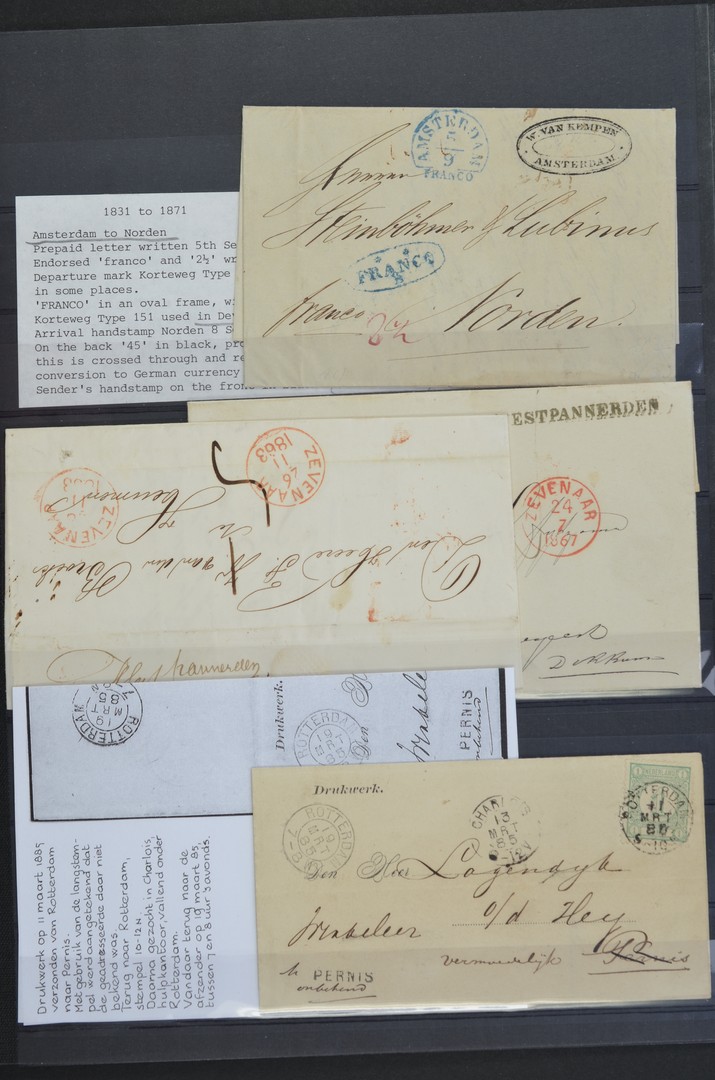 1831 to 1871
Amsterdam to Norden
Prepaid letter written 5th Se
Endorsed 'franco' and '2½' wr
Departure mark Korteweg Type
in some places.
'FRANCO' in an oval frame, wi
Korteweg Type 151 used in De
Arrival handstamp Norden 8 Se
On the back '45' in black, pro
this is crossed through and re
conversion to German currency
Sender's handstamp on the front in
AMSTERDAM
5
9
FRANCO
W. VAN KEMPEN
AMSTERDAM
Herren
Steinböhmer & Lubinus
FRANCO
franco
Norden.
ESTPANNERDEN
ZEVENAAR
24
7
1867
Dokkum
ZEVENAAR
11
1863
5
ZEVENAAR
Den Heere
te
Drukwerk.
ROTTERDAM
19
MRT
85
ROTTERDAM
19
MRT
85
Den
Wrakeler
PERNIS
onbekend
Drukwerk op 11 maart 1885
verzonden van Rotterdam
naar Pernis.
Met gebruik van de langstem-
pel werd aangetekend dat
de geadresseerde daar niet
bekend was.
Terug naar Rotterdam,
stempel 10-12 N
Daarna gezocht in Charlois,
hulpkantoor, vallend onder
Rotterdam.
Vandaar terug naar de
afzender op 19 maart 85,
tussen 7 en 8 uur 's avonds.
Drukwerk.
ROTTERDAM
19
MRT
85
7-8
CHARLOIS
13
MRT
85
8-12V
ROTTERDAM
11
MRT
85
Den Heer Lagendyk
o/d Hey
vermoedelijk Pernis
te PERNIS
onbekend